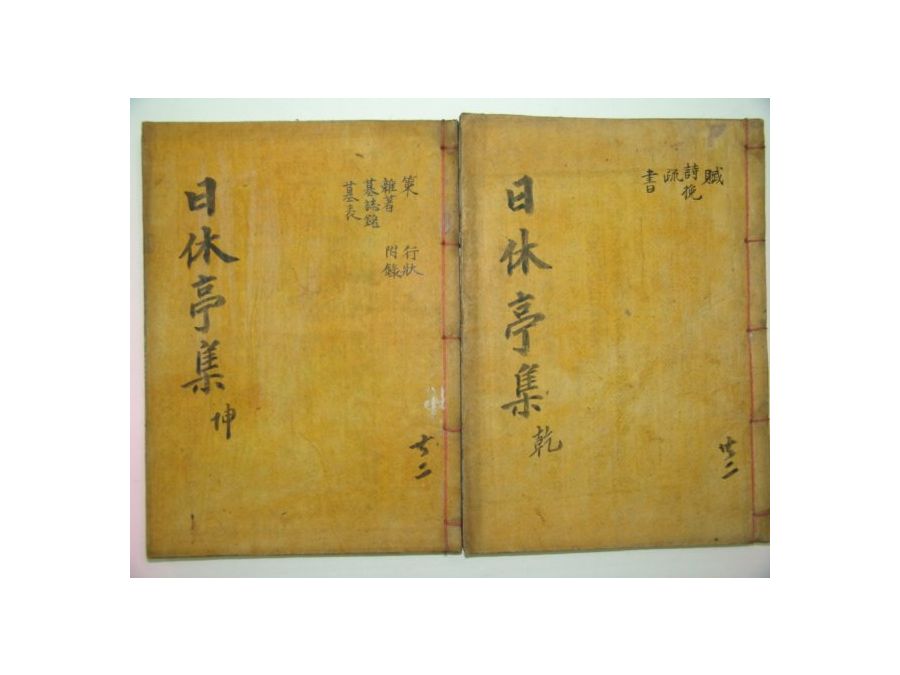 賦
詩挽
疏
書
日休亭集
乾
共二
策
行狀
雜著
附錄
墓誌銘
墓表
日休亭集
坤
共二